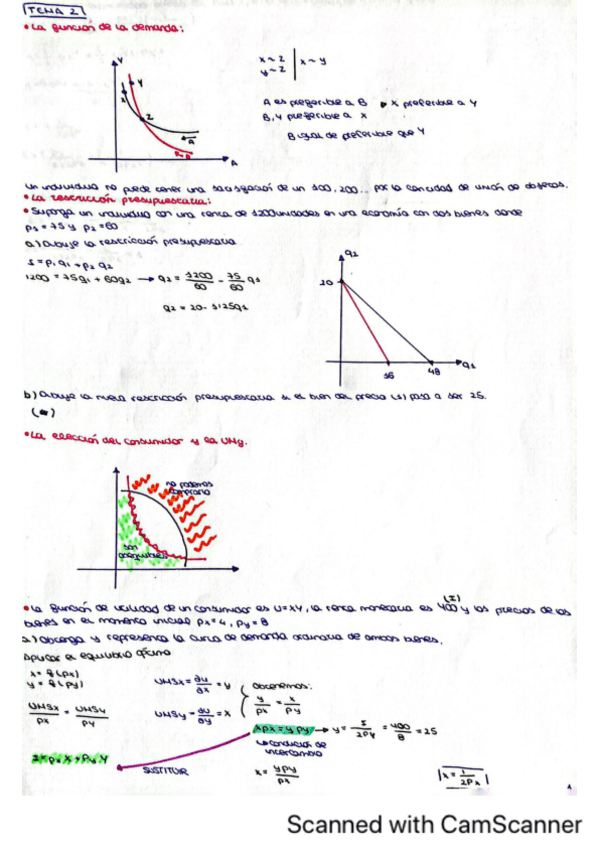 TEMA 2
• La función de la demanda:
x ~ z
y ~ z
x ~ y
Y
Y
X
Z
A
B
A
A es preferible a B
x preferible a y
B, y preferible a x
B igual de preferible que y
Un individuo no puede tener una satisfacción de un 100, 200... por la cantidad de unión de objetos.
• La restricción presupuestaria:
• Suponga un individuo con una renta de 1200 unidades en una economía con dos bienes donde
p1 = 75 y p2 = 60
a) Dibuje la restricción presupuestaria
I = p1 q1 + p2 q2
1200 = 75q1 + 60q2 → q2 = 1200/60 - 75/60 q1
q2 = 20 - 1'25q1
q2
20
16
48
q1
b) Dibuje la nueva restricción presupuestaria si el bien del precio (1) pasa a ser 25.
(*)
• La elección del consumidor y la UMg.
no podemos
comprarlo
son
asequibles
• La función de utilidad de un consumidor es U=XY, la renta monetaria es 400 y los precios de los
(I)
bienes en el momento inicial px=4, py=8
a) Obtenga y representa la curva de demanda ordinaria de ambos bienes.
Aplicar el equilibrio óptimo
x = f(px)
y = f(py)
UMSx = ∂u/∂x = y
UMSy = ∂u/∂y = x
Obtenemos:
y/px = x/py
UMSx/px = UMSy/py
xpx = y py → y = I/2py = 400/8 = 25
↳ condición de
intercambio
I = px X + py Y
SUSTITUIR
x = y py/px
x = I/2px
1
Scanned with CamScanner